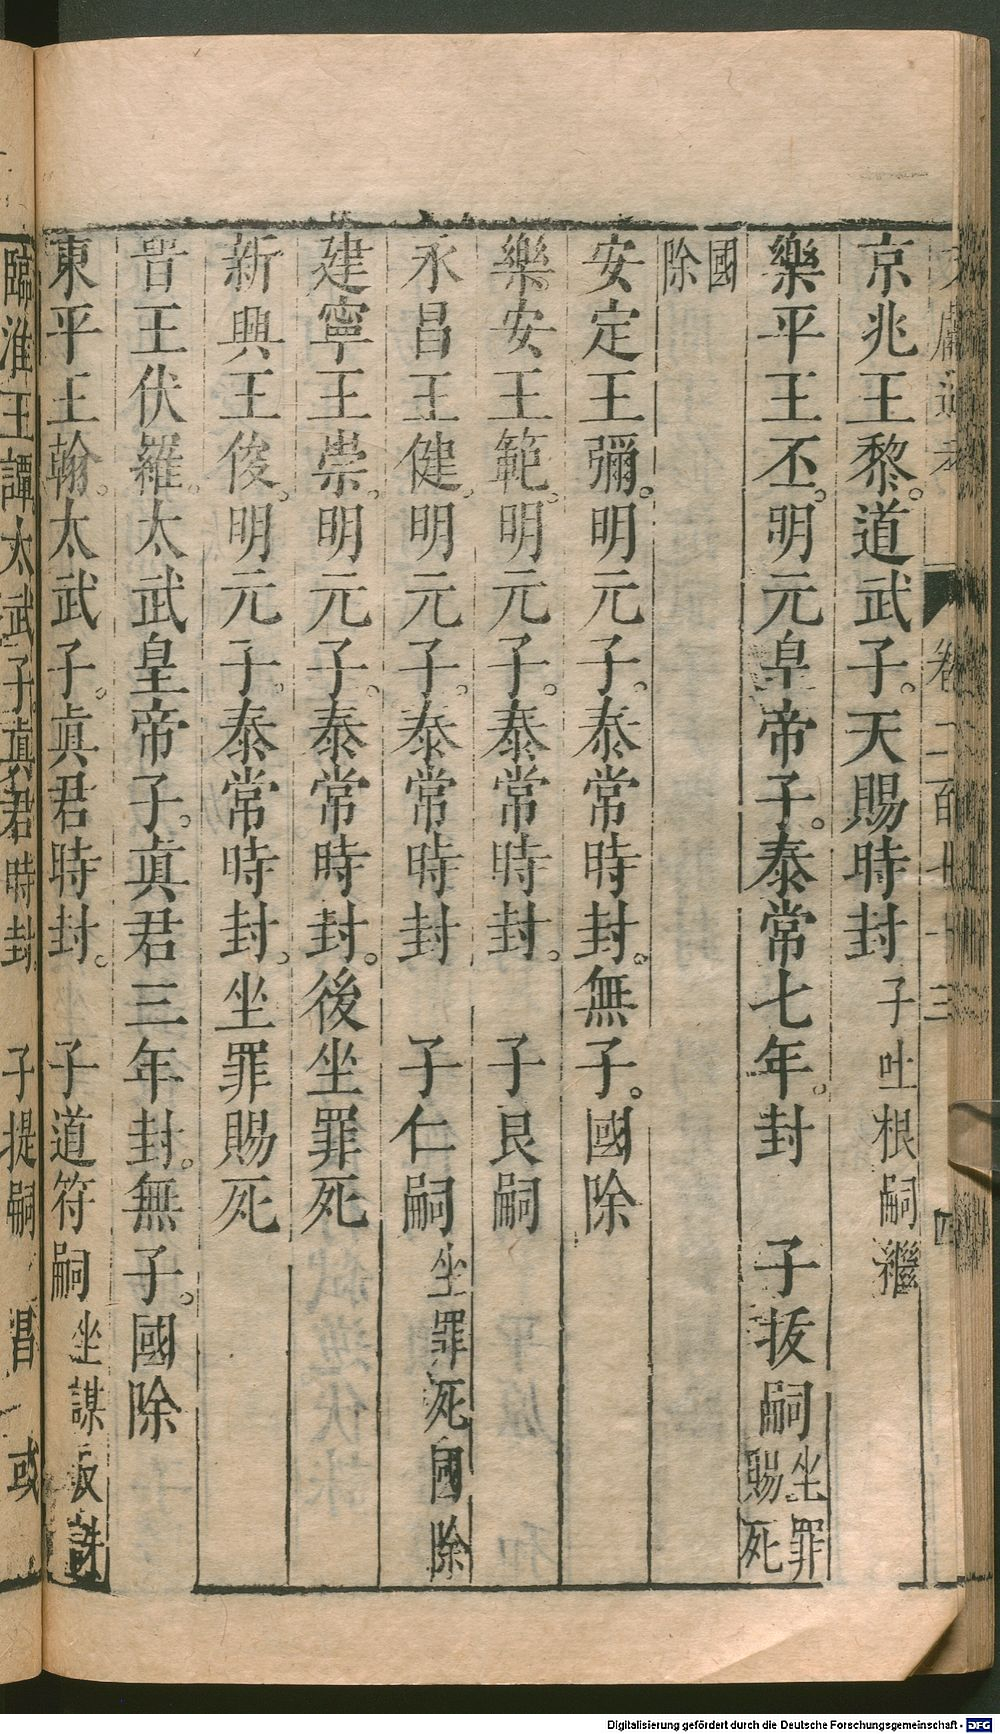 文獻通考 卷二百七十三 四
京兆王黎。道武子。天賜時封 子吐根嗣繼
樂平王丕。明元皇帝子。泰常七年。封 子拔嗣 坐罪賜死
國除
安定王彌。明元子。泰常時封。無子。國除
樂安王範。明元子。泰常時封。 子良嗣
永昌王健。明元子。泰常時封 子仁嗣 坐罪死國除
建寧王崇。明元子。泰常時封。後坐罪死
新興王俊。明元子。泰常時封。坐罪賜死
晉王伏羅。太武皇帝子。眞君三年封。無子。國除
東平王翰。太武子。眞君時封。 子道符嗣 坐謀反誅
臨淮王譚太武子。眞君時封 子提嗣 昌 或
Digitalisierung gefördert durch die Deutsche Forschungsgemeinschaft - DFG